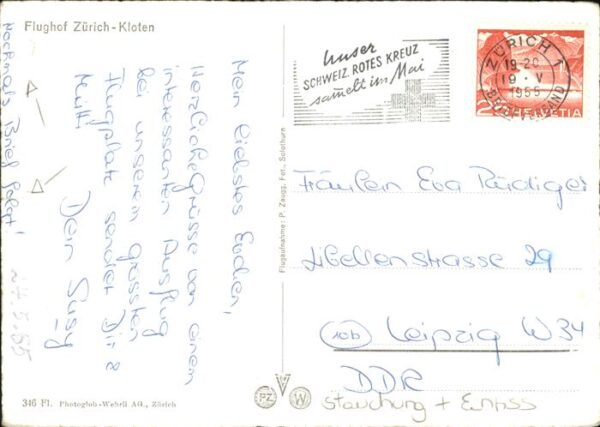 Flughof Zürich-Kloten
Mein liebstes Evchen,
Herzliche Grüsse von einem
interessanten Ausflug
bei unserem grössten
Flugplatz sendet Dir &
Mutti
Dein Susy
Nochmals Brief folgt!
Flugaufnahme: P. Zaugg, Fot., Solothurn
Unser
SCHWEIZ. ROTES KREUZ
sammelt im Mai
ZÜRICH 1
19-20
19. V
1955
BRIEFVERSAND
HELVETIA
Fräulein Eva Rüdiger
Libellenstrasse 29
(10b) Leipzig W34
DDR
Stauchung + Einriss
PZ
W
346 Fl. Photoglob-Wehrli AG., Zürich